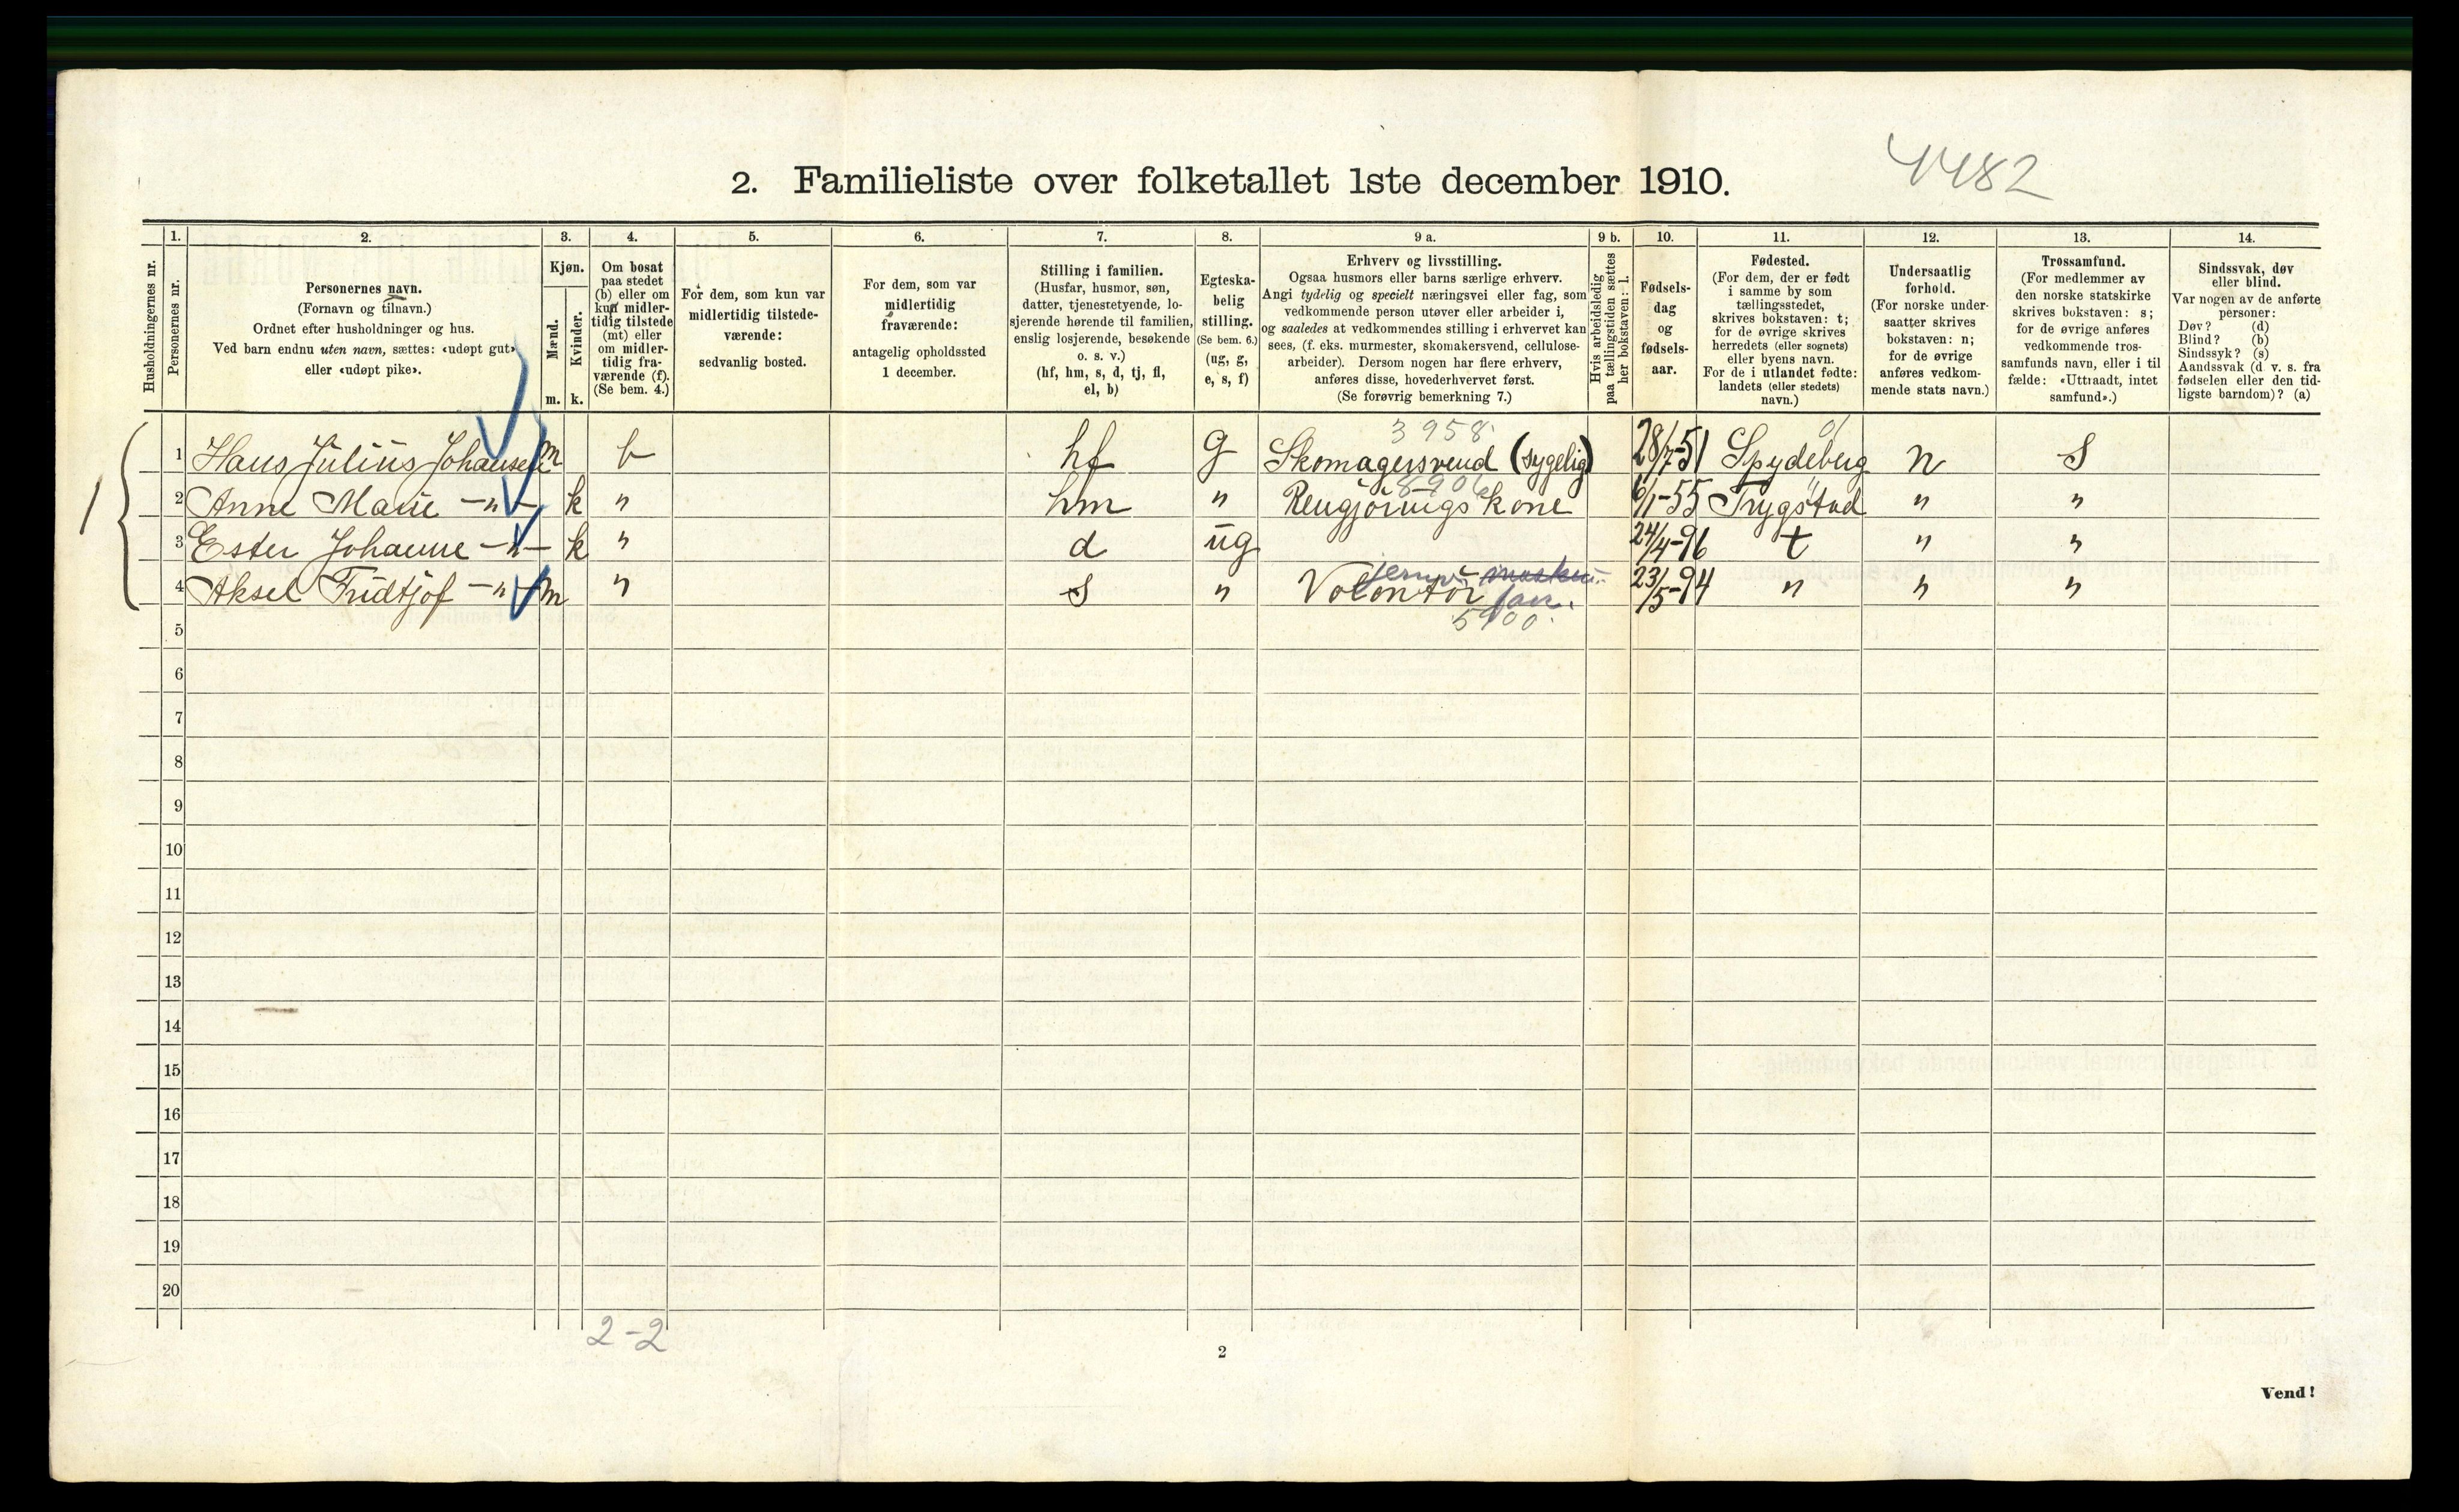 4482
2. Familieliste over folketallet 1ste december 1910.
Husholdningernes nr.
1. Personernes nr.
2. Personernes navn.
(Fornavn og tilnavn.)
Ordnet efter husholdninger og hus.
Ved barn endnu uten navn, sættes: «udøpt gut»
eller «udøpt pike».
3. Kjøn.
Mænd. m.
Kvinder. k.
4. Om bosat
paa stedet
(b) eller om
kun midler-
tidig tilstede
(mt) eller
om midler-
tidig fra-
værende (f).
(Se bem. 4.)
5. For dem, som kun var
midlertidig tilstede-
værende:
sedvanlig bosted.
6. For dem, som var
midlertidig
fraværende:
antagelig opholdssted
1 december.
7. Stilling i familien.
(Husfar, husmor, søn,
datter, tjenestetyende, lo-
sjerende hørende til familien,
enslig losjerende, besøkende
o. s. v.)
(hf, hm, s, d, tj, fl,
el, b)
8. Egteska-
belig
stilling.
(Se bem. 6.)
(ug, g,
e, s, f)
9 a. Erhverv og livsstilling.
Ogsaa husmors eller barns særlige erhverv.
Angi tydelig og specielt næringsvei eller fag, som
vedkommende person utøver eller arbeider i,
og saaledes at vedkommendes stilling i erhvervet kan
sees, (f. eks. murmester, skomakersvend, cellulose-
arbeider). Dersom nogen har flere erhverv,
anføres disse, hovederhvervet først.
(Se forøvrig bemerkning 7.)
9 b. Hvis arbeidsledig
paa tællingstiden sættes
her bokstaven: l.
10. Fødsels-
dag
og
fødsels-
aar.
11. Fødested.
(For dem, der er født
i samme by som
tællingsstedet,
skrives bokstaven: t;
for de øvrige skrives
herredets (eller sognets)
eller byens navn.
For de i utlandet fødte:
landets (eller stedets)
navn.)
12. Undersaatlig
forhold.
(For norske under-
saatter skrives
bokstaven: n;
for de øvrige
anføres vedkom-
mende stats navn.)
13. Trossamfund.
(For medlemmer av
den norske statskirke
skrives bokstaven: s;
for de øvrige anføres
vedkommende tros-
samfunds navn, eller i til
fælde: «Uttraadt, intet
samfund».)
14. Sindssvak, døv
eller blind.
Var nogen av de anførte
personer:
Døv? (d)
Blind? (b)
Sindssyk? (s)
Aandssvak (d. v. s. fra
fødselen eller den tid-
ligste barndom)? (a)
3958
1 1 Hans Julius Johansen m b hf g Skomagersvend (sygelig) 28/7-51 Spydeberg n S
8906
2 Anne Marie -"- k " hm " Rengjöringskone 6/1-55 Trygstad " "
3 Ester Johanne -"- k " d ug 24/4-96 t " "
4 Aksel Fridtjof -"- m " s " Volontör 23/5-94 " " "
5900
5
6
7
8
9
10
11
12
13
14
15
16
17
18
19
20
2-2
2
Vend!